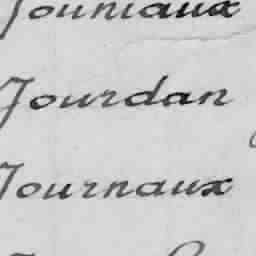 Jouniaux
Jourdan
Journaux